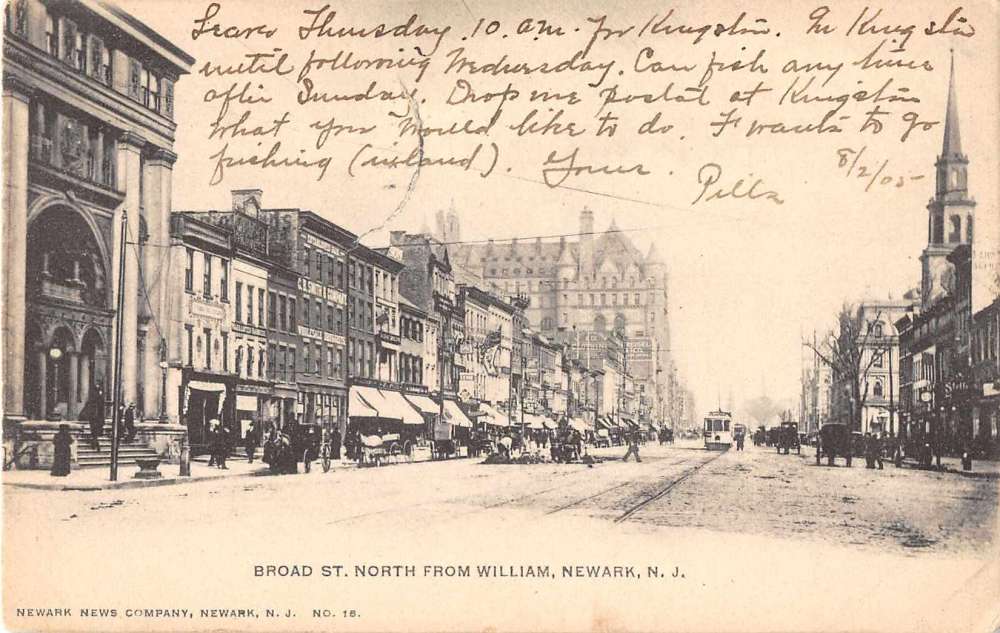 Leave Thursday 10 am. for Kingston. In Kingston
until following Wednesday. Can fish any time
after Sunday. Drop me postal at Kingston
what you would like to do. F wants to go
fishing (island). Yours Pills 8/2/05
C. B. SMITH & COMPANY
BROAD ST. NORTH FROM WILLIAM, NEWARK, N. J.
NEWARK NEWS COMPANY, NEWARK, N. J. NO. 16.